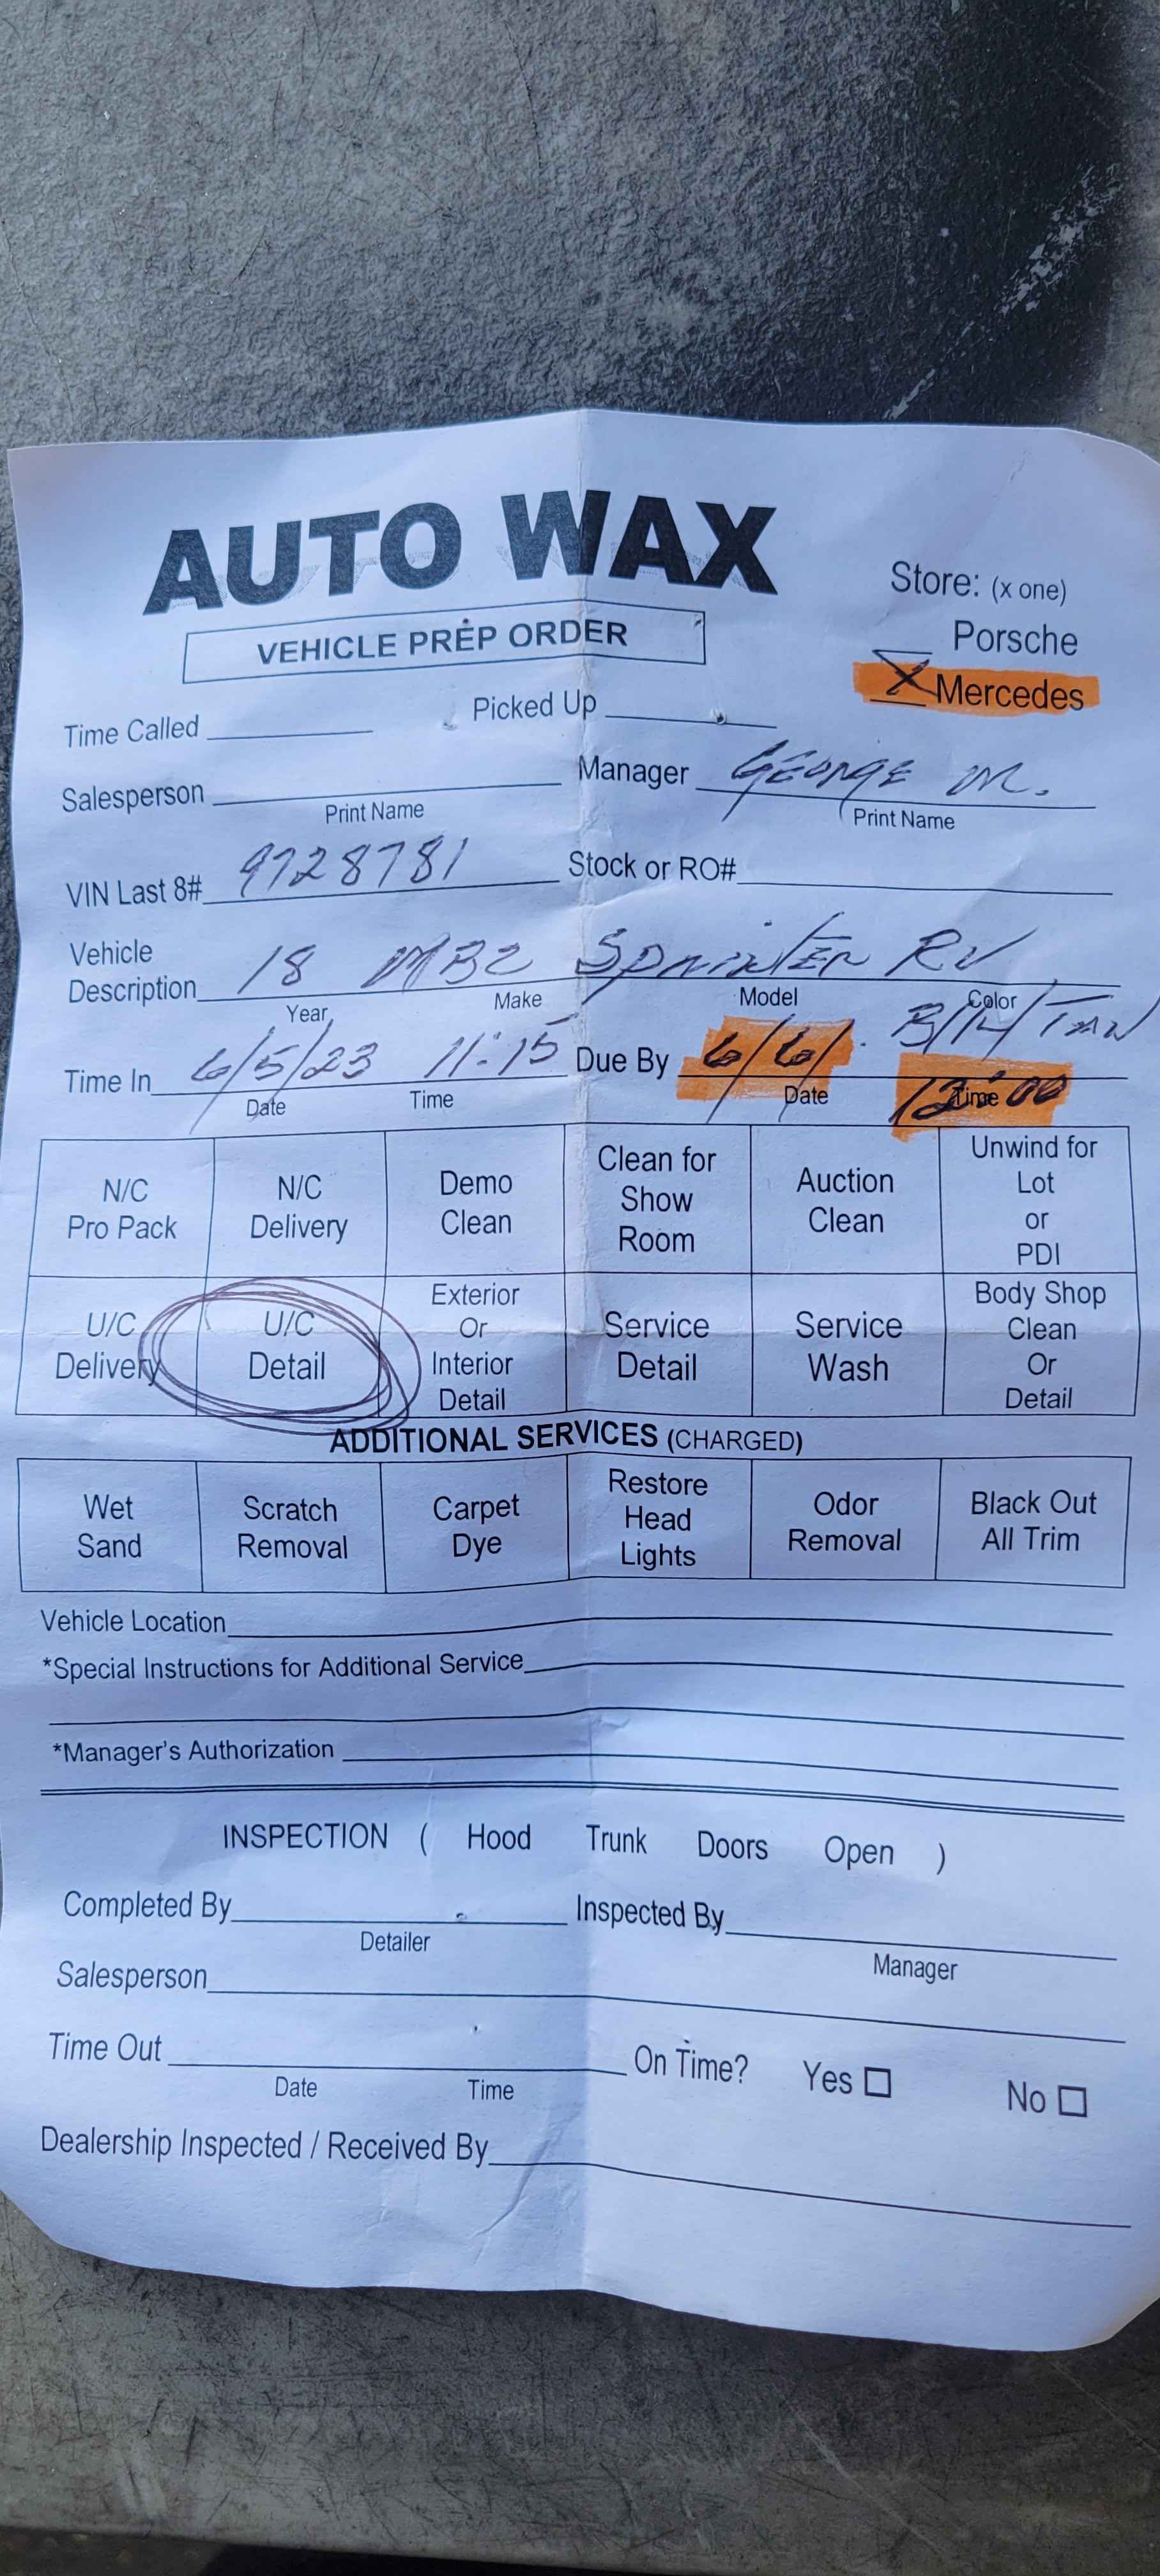 AUTO WAX
VEHICLE PREP ORDER
Store: (x one)
Porsche
X Mercedes
Time Called Picked Up
Salesperson Manager George M.
Print Name Print Name
VIN Last 8# 9728781 Stock or RO#
Vehicle Description 18 MBZ Sprinter RV
Year Make Model Color
Blk/Tan
Time In 6/5/23 11:15 Due By 6/6/ 12:00
Date Time Date Time
N/C Pro Pack
N/C Delivery
Demo Clean
Clean for Show Room
Auction Clean
Unwind for Lot or PDI
U/C Delivery
U/C Detail
Exterior Or Interior Detail
Service Detail
Service Wash
Body Shop Clean Or Detail
ADDITIONAL SERVICES (CHARGED)
Wet Sand
Scratch Removal
Carpet Dye
Restore Head Lights
Odor Removal
Black Out All Trim
Vehicle Location
*Special Instructions for Additional Service
*Manager's Authorization
INSPECTION ( Hood Trunk Doors Open )
Completed By Inspected By
Detailer Manager
Salesperson
Time Out On Time? Yes ☐ No ☐
Date Time
Dealership Inspected / Received By